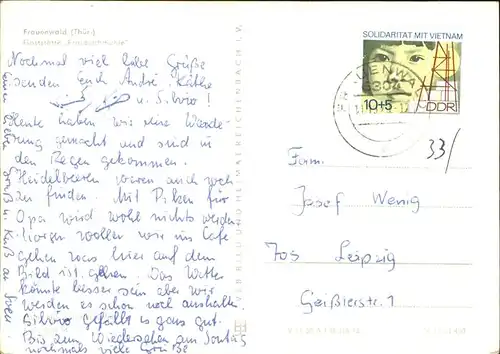 Frauenwald (Thür.)
Nochmal viel liebe Grüße
senden Euch André Käthe
u. Silvio!
Heute haben wir eine Wande-
rung gemacht und sind in
den Regen gekommen.
Heidelbeeren waren auch noch
zu finden. Mit Pilzen für
Opa wird wohl nichts werden.
Morgen wollen wir ins Cafe
gehen was hier auf dem
Bild ist gehen. Das Wetter
könnte besser sein aber wir
werden es schon noch aushalten.
Silvio gefällt es ganz gut.
Bis zum Wiedersehen am Sonntag
nochmals viele Grüße
SOLIDARITÄT MIT VIETNAM
10+5 DDR
33/
Fam.
Josef Wenig
705 Leipzig
Geißlerstr. 1